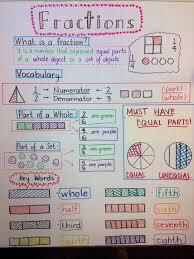 Fractions
What is a fraction?
It is a number that expresses equal parts
of a whole object or a set of objects
1
4
1
4
Vocabulary
1 → Numerator ← 2
2 → Denominator → 3
(part)
(whole)
Part of a Whole:
are green
6
are purple
Part of a Set:
are green
5
are purple
MUST HAVE
EQUAL PARTS!
EQUAL
UNEQUAL
Key Words
whole
half
third
fourth
fifth
sixth
seventh
eighth